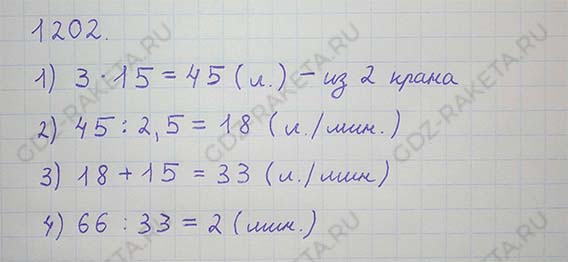 1202.
1) 3 · 15 = 45 (л.) – из 2 крана
2) 45 : 2,5 = 18 (л./мин.)
3) 18 + 15 = 33 (л./мин)
4) 66 : 33 = 2 (мин.)
GDZ-RAKETA.RU
GDZ-RAKETA.RU
GDZ-RAKETA.RU
GDZ-RAKETA.RU
GDZ-RAKETA.RU
GDZ-RAKETA.RU